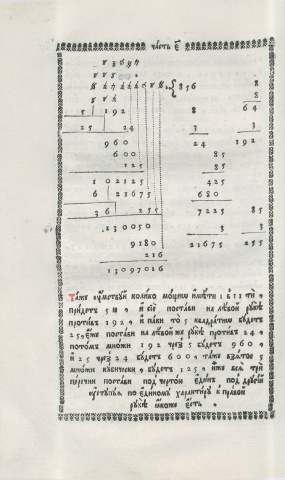 часть
856 8
8
5 192 8 64
25 24 3 3
960 24 192
600 85
125 85
102125 425
6 21675 680
36 255 7225 85
230050 3 3
9180 21675 255
216
13097016
Таже колико мощно имѣти
придетъ 5 и сїе постави на лѣвой рукѣ
противъ 192 и паки то 5 квадратнѡ будетъ
25 еже постави на лѣвой же рукѣ противъ 24
потомъ множи 192 чрез 5 будетъ 960
и 25 чрез 24 будетъ 600 таже взятое 5
множи кубически будетъ 125 вся три
перечни постави под чертою единъ под другїй
уступая по единому характиру к правой
рукѣ якоже есть